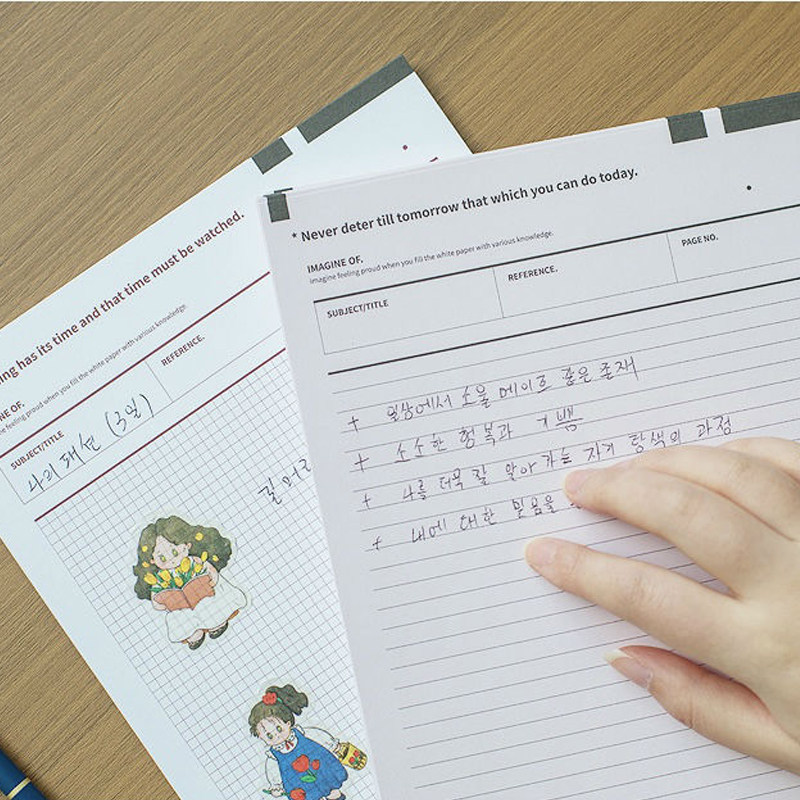 ing has its time and that time must be watched.
NE OF.
ne feeling proud when you fill the white paper with various knowledge.
SUBJECT/TITLE
REFERENCE.
나의 패션 (3일)
* Never deter till tomorrow that which you can do today.
IMAGINE OF.
Imagine feeling proud when you fill the white paper with various knowledge.
SUBJECT/TITLE
REFERENCE.
PAGE NO.
+ 일상에서 소울 메이트 같은 존재
+ 소소한 행복과 기쁨
+ 나를 더욱 잘 알아가는 자기 탐색의 과정
+ 내에 대한 믿음을